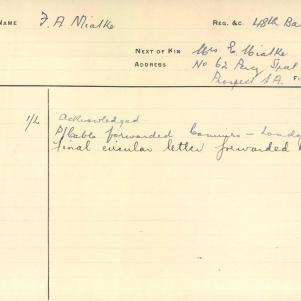 NAME F. A. Mialke REG. &C. 48th Ba
NEXT OF KIN Mrs E. Mialke
ADDRESS No 62 Percy
Prospect S.A.
1/L Acknowledged
P/Cable forwarded Commrs - London
Final circular letter forwarded